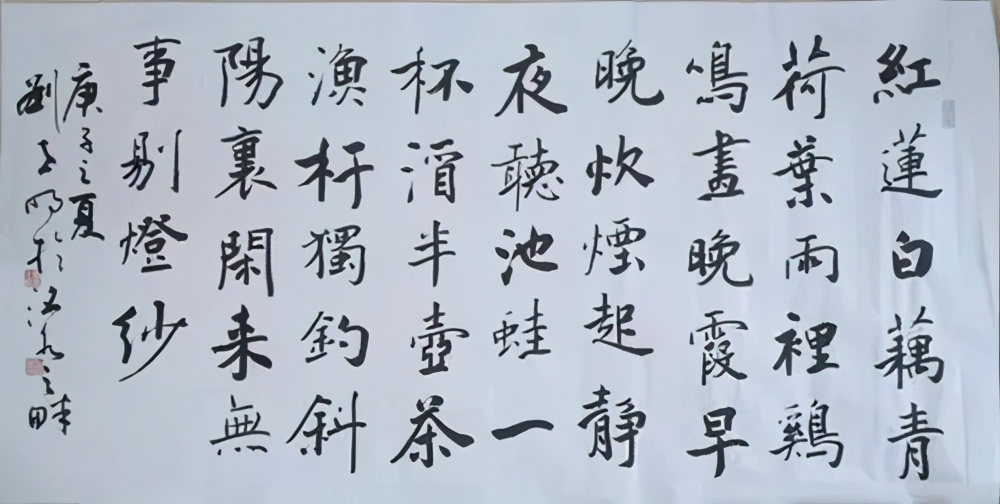 紅蓮白藕青
荷葉雨裡鷄
鳴畫晚霞早
晚炊煙起静
夜聽池蛙一
杯酒半壺茶
漁杆獨釣斜
陽裏閑来無
事剔燈紗
庚子之夏
劉明於汶水之畔